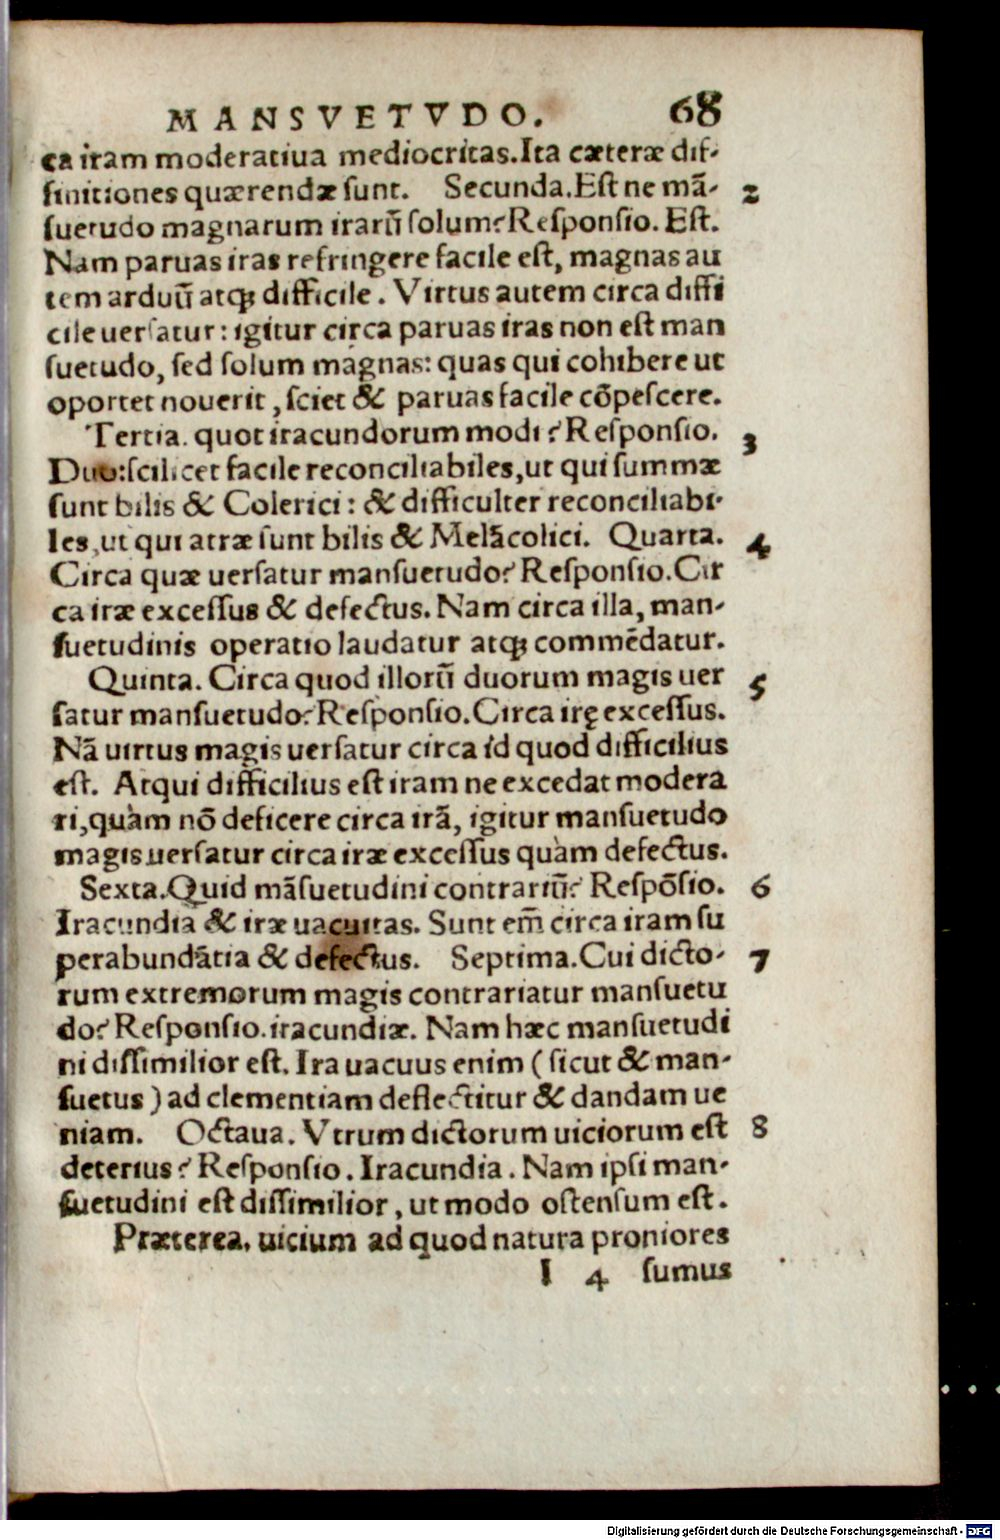 MANSVETVDO. 68
ca iram moderatiua mediocritas. Ita cæteræ dif-
finitiones quærendæ sunt. Secunda. Est ne mã- 2
suetudo magnarum irarũ solum? Responsio. Est.
Nam paruas iras refringere facile est, magnas au
tem arduũ atq; difficile. Virtus autem circa diffi
cile uersatur: igitur circa paruas iras non est man
suetudo, sed solum magnas: quas qui cohibere ut
oportet nouerit, sciet & paruas facile cõpescere.
Tertia. quot iracundorum modi? Responsio. 3
Duo: scilicet facile reconciliabiles, ut qui summæ
sunt bilis & Colerici: & difficulter reconciliabi-
les, ut qui atræ sunt bilis & Melãcolici. Quarta. 4
Circa quæ uersatur mansuetudo? Responsio. Cir
ca iræ excessus & defectus. Nam circa illa, man-
suetudinis operatio laudatur atq; commẽdatur.
Quinta. Circa quod illorũ duorum magis uer 5
satur mansuetudo? Responsio. Circa irę excessus.
Nã uirtus magis uersatur circa id quod difficilius
est. Atqui difficilius est iram ne excedat modera
ri, quàm nõ deficere circa irã, igitur mansuetudo
magis uersatur circa iræ excessus quàm defectus.
Sexta. Quid mãsuetudini contrariũ? Respõsio. 6
Iracundia & iræ uacuitas. Sunt em̃ circa iram su
perabundãtia & defectus. Septima. Cui dicto- 7
rum extremorum magis contrariatur mansuetu
do? Responsio. iracundiæ. Nam hæc mansuetudi
ni dissimilior est. Ira uacuus enim (sicut & man-
suetus) ad clementiam deflectitur & dandam ue
niam. Octaua. Vtrum dictorum uiciorum est 8
deterius? Responsio. Iracundia. Nam ipsi man-
suetudini est dissimilior, ut modo ostensum est.
Præterea. uicium ad quod natura proniores
I 4 sumus
Digitalisierung gefördert durch die Deutsche Forschungsgemeinschaft - DFG